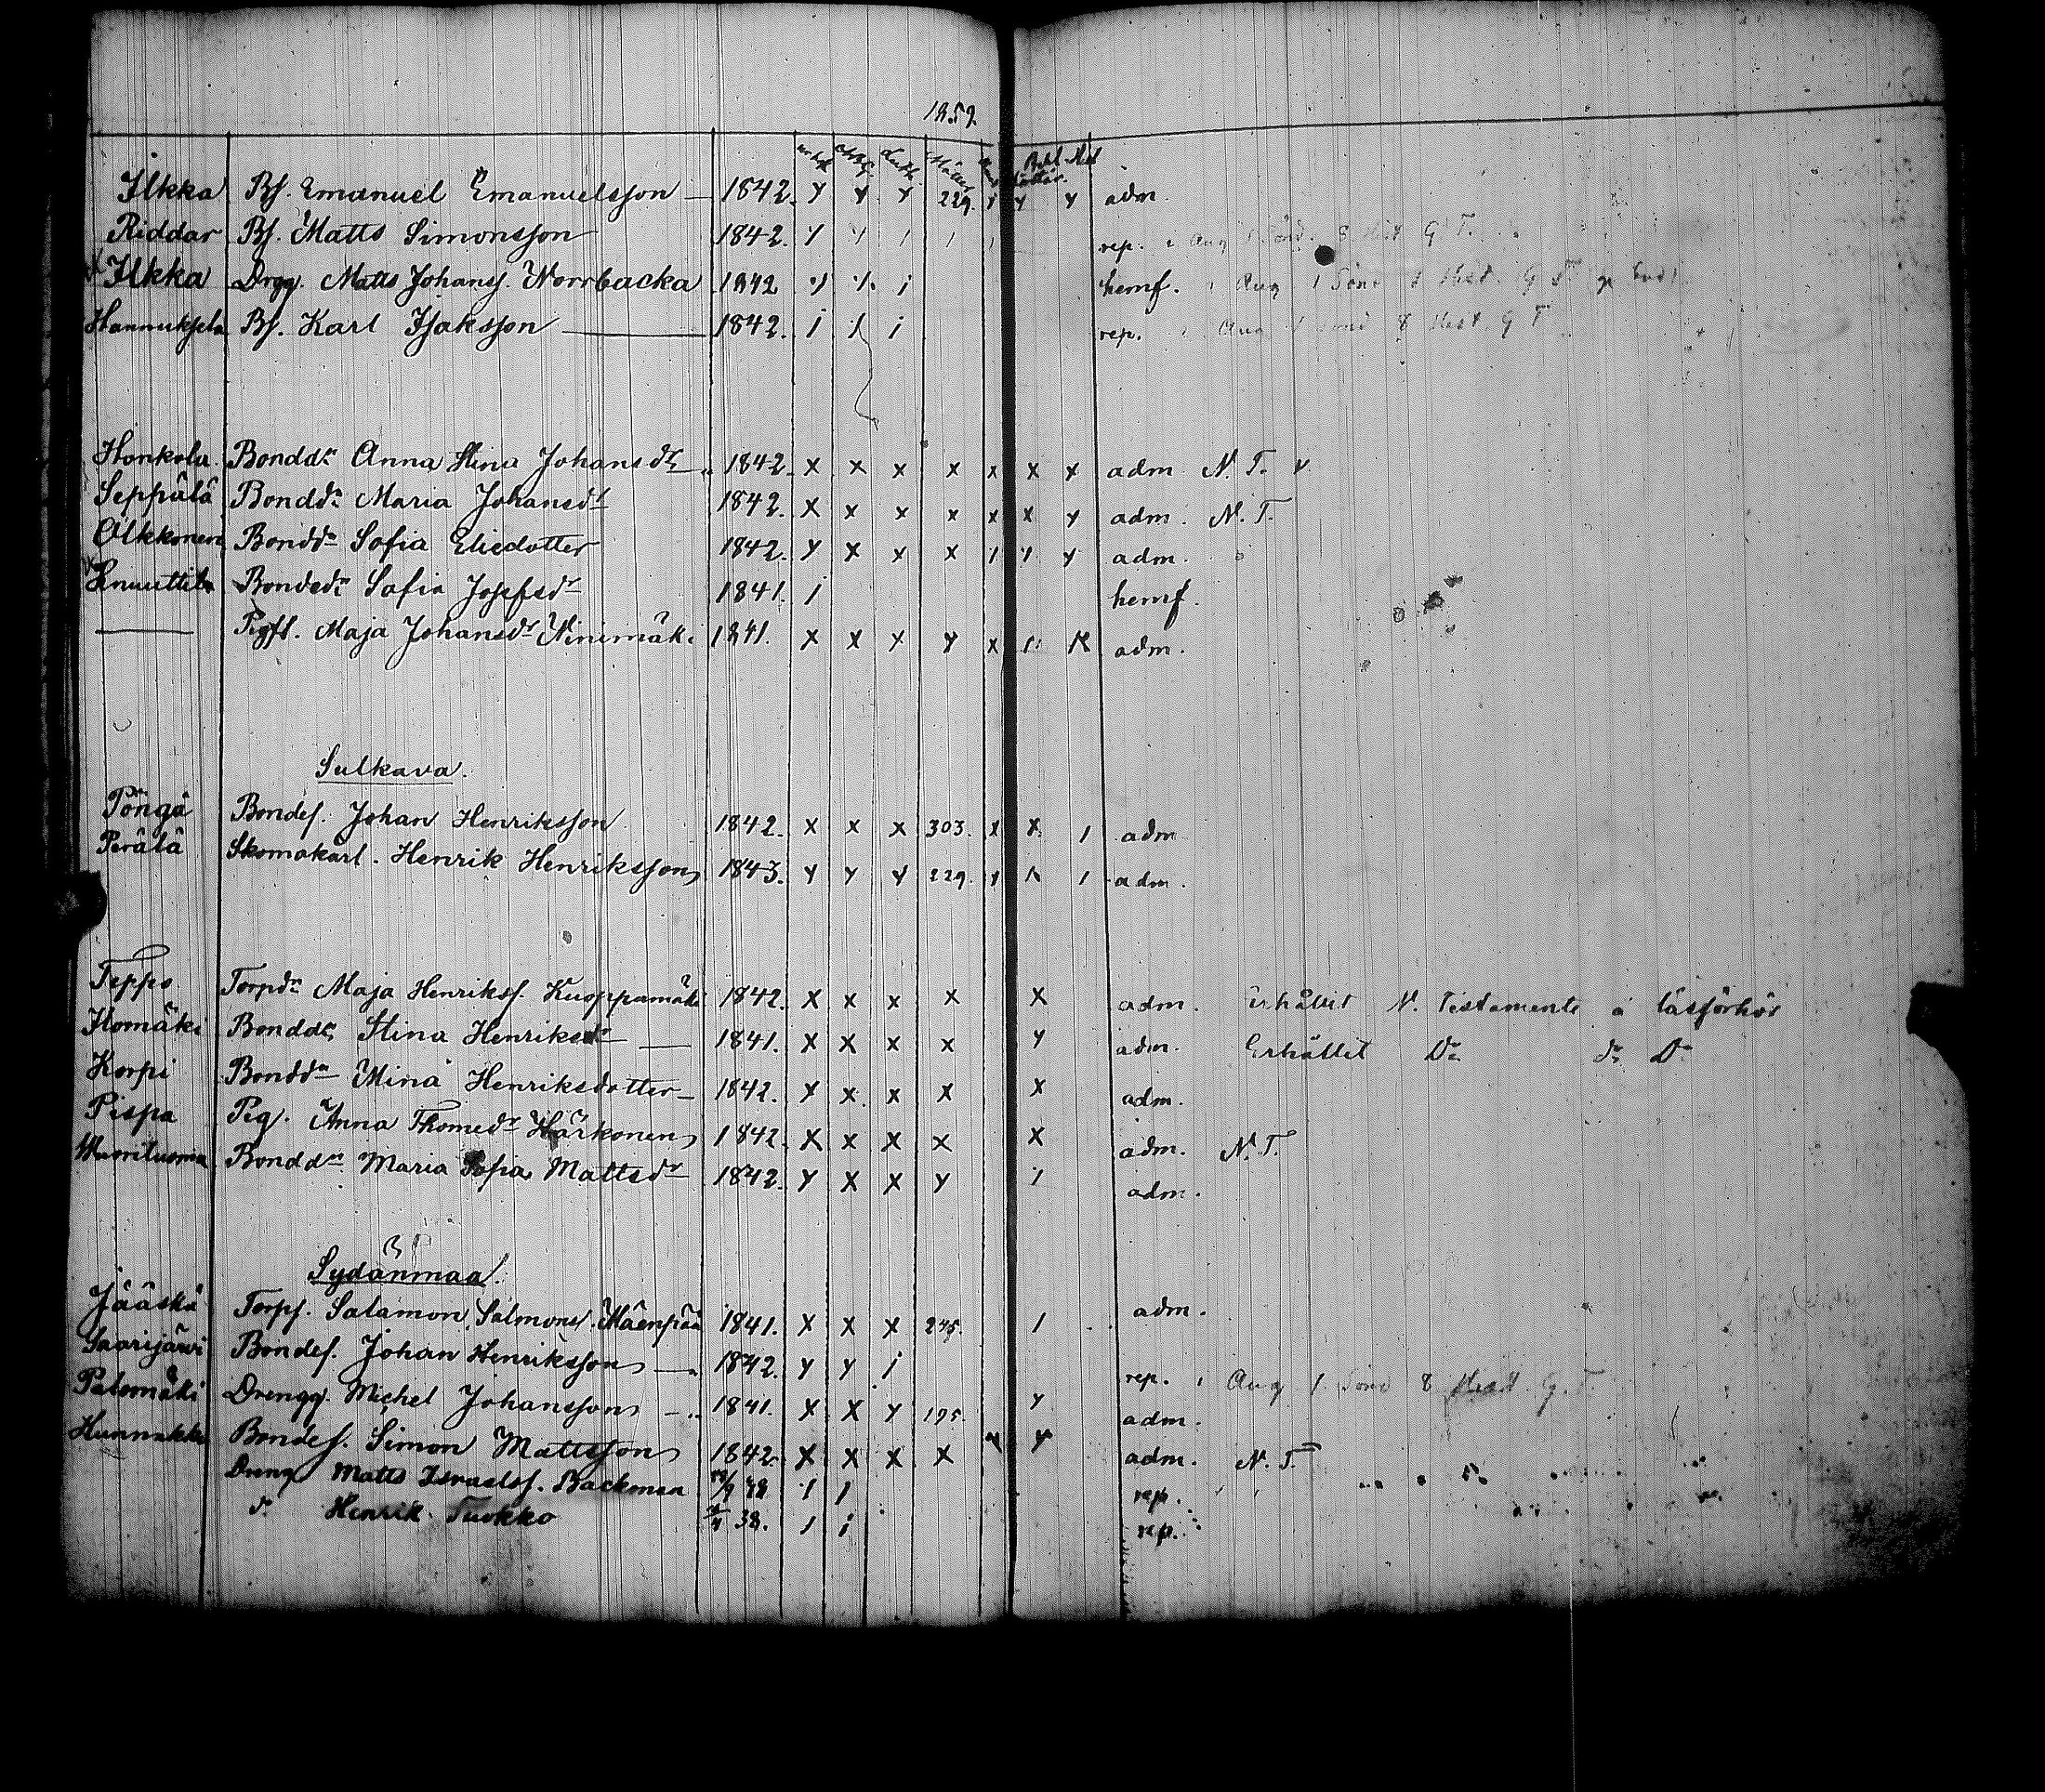 1852
Ilkka Bs. Emanuel Emanuelsson 1842. 229. adm.
Riddar Bs. Matts Simonsson 1842. rep. i Aug 1 Sönd. 8 Hist G T.
Ilkka Drgg. Matts Johanss. Norrbacka 1842 hemf. i Aug 1 Sönd Hist. G T
Hannuksela Bs. Karl Isaksson 1842. rep. i Aug 1 Sönd 8 Hist. G T
Honkola Bondd:r Anna Stina Johansd:r 1842. x x x x x x x adm N. T.
Seppälä Bondd:r Maria Johansd:r 1842. x x x x x x adm. N. T.
Olkkonen Bondd:r Sofia Eliedotter 1842. x x x adm.
Knuuttila Bonded:r Sofia Josefsd:r 1841. hemf.
Maja Johansd:r Ninimäki 1841. x x x x adm.
Sulkava.
Pöngä Bondes. Johan Henriksson 1842. x x x 303. x x adm
Perälä Skomakarl. Henrik Henriksson 1843. 229. adm.
Teppo Torpd:r Maja Henrikss. Kuoppamäki 1842. x x x x x adm. Erhållit N. Testamente å läsförhör
Homäki Bondd:r Stina Henriksd:r 1841. x x x x adm. Erhållit D:o d:o D:o
Korpi Bondd:r Mina Henriksdotter 1842. x x x x x adm.
Pispa Pig. Anna Thomed:r Härkonen 1842. x x x x x adm. N. T.
Wuoriluoma Bondd:r Maria Sofia Mattsd:r 1842. x x adm.
Sydänmaa.
Jääskä Torps. Salamon Salmons. Mäenpää 1841. x x x adm.
Saarijärvi Bondes. Johan Henriksson 1842. rep. i Aug 1 Sönd 8 Hist. G. T.
Palomäki Drengg. Michel Johansson 1841. x x 195. adm.
Bondes. Simon Mattsson 1842 x x x x adm. N. T.
Dreng Matts Israelss. Backman rep.
d:o Henrik Tuokko 38. rep.